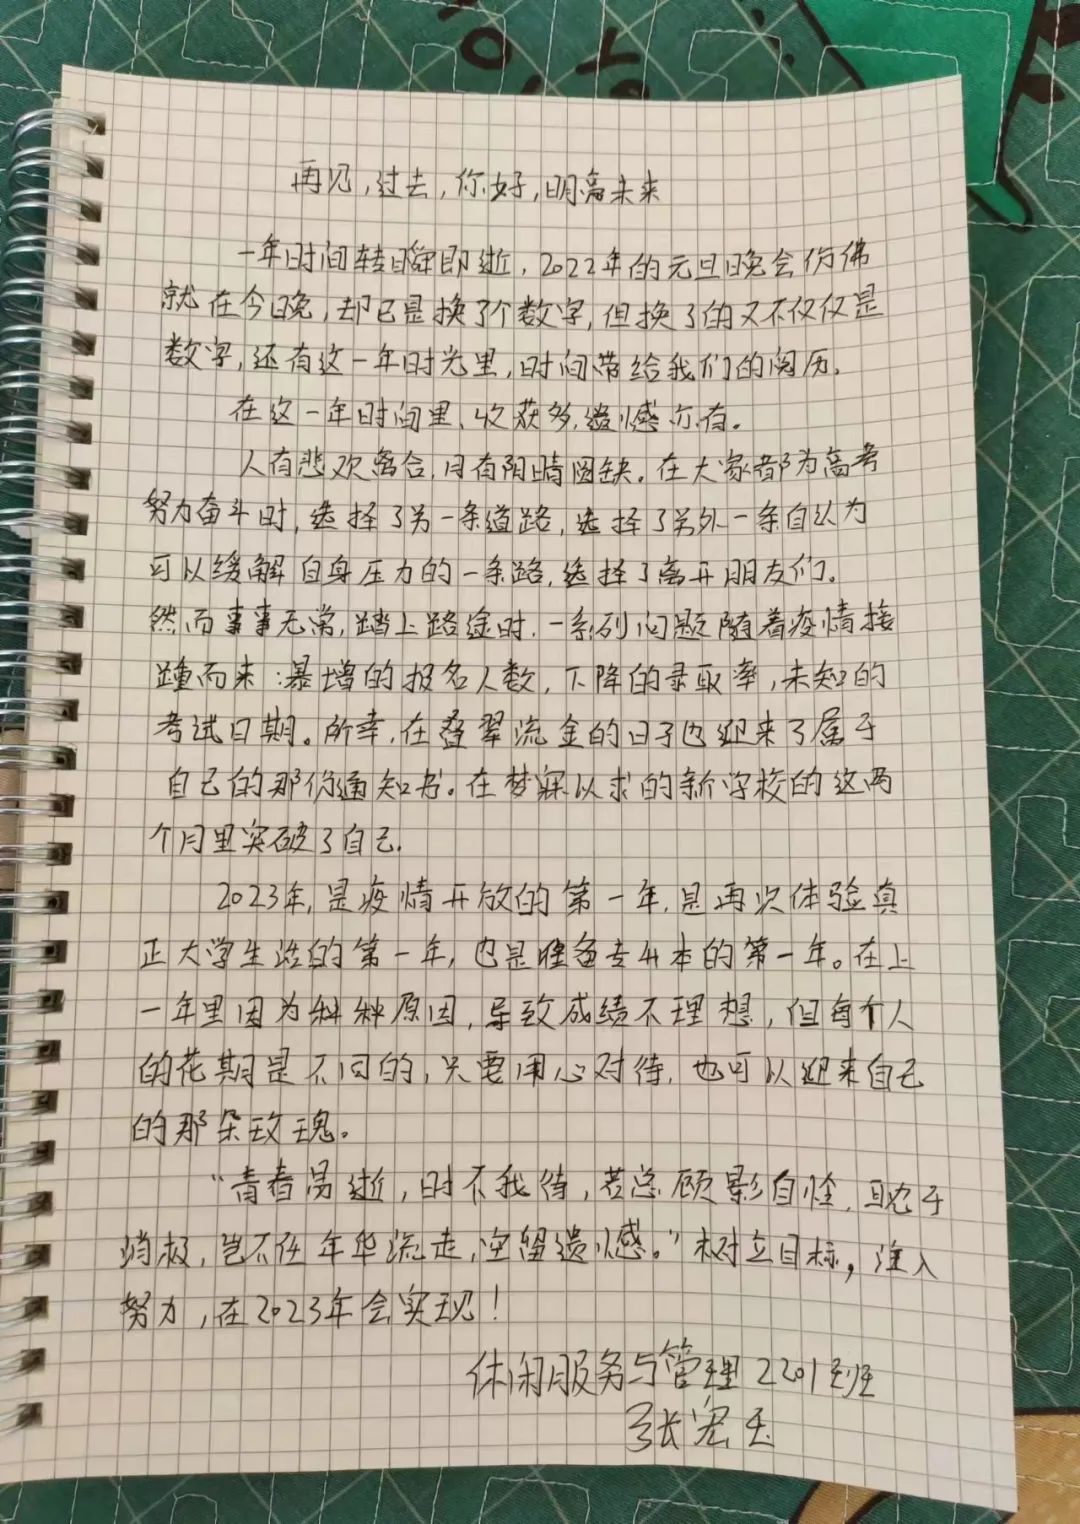 再见,过去,你好,明亮未来
一年时间转瞬即逝,2022年的元旦晚会仿佛
就在今晚,却已是换了个数字,但换了的又不仅仅是
数字,还有这一年时光里,时间带给我们的阅历.
在这一年时间里、收获多,遗憾亦有。
人有悲欢离合,月有阴晴圆缺.在大家都为高考
努力奋斗时,选择了另一条道路,选择了另外一条自认为
可以缓解自身压力的一条路,选择了离开朋友们。
然而事事无常,踏上路途时.一系列问题随着疫情接
踵而来:暴增的报名人数,下降的录取率,未知的
考试日期。所幸,在叠翠流金的日子也迎来了属于
自己的那份通知书。在梦寐以求的新学校的这两
个月里突破了自己.
2023年,是疫情开放的第一年,是再次体验真
正大学生活的第一年,也是准备专升本的第一年。在上
一年里因为种种原因,导致成绩不理想,但每个人
的花期是不同的,只要用心对待,也可以迎来自己
的那朵玫瑰。
“青春易逝,时不我待,若总顾影自怜,耽于
消极,岂不任年华流走,空留遗憾。”树立目标,注入
努力,在2023年会实现!
休闲服务与管理2201班
张宏玉